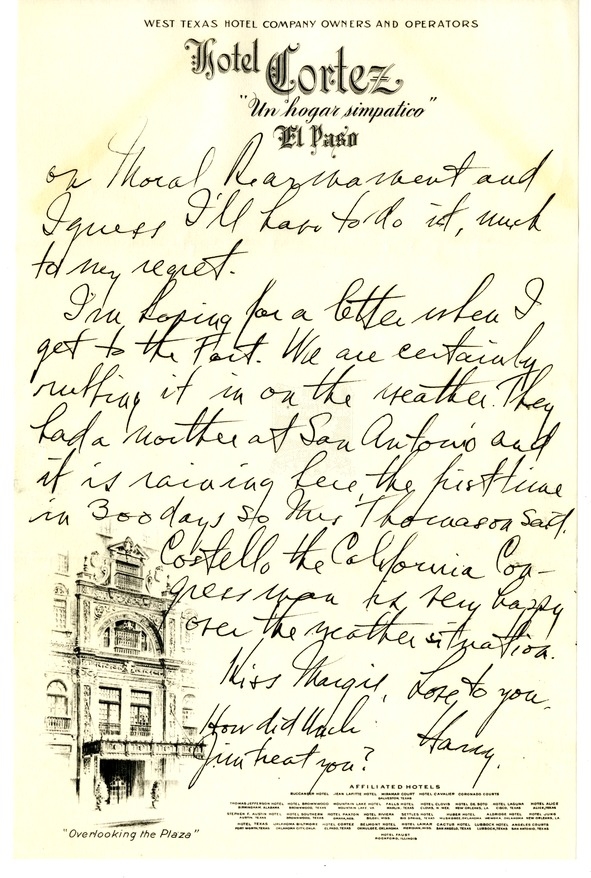 WEST TEXAS HOTEL COMPANY OWNERS AND OPERATORS
Hotel Cortez
"Un hogar simpatico"
El Paso
on Moral Rearmament and
I guess I'll have to do it, much
to my regret.
I'm hoping for a letter when I
get to the Fort. We are certainly
rubbing it in on the weather. They
had a norther at San Antonio and
it is raining here, the first time
in 300 days so Mrs Thomason said.
Costello the California Con-
gressman is very happy
over the weather situation.
Kiss Margie, Love to you.
How did Unk
Harry.
Jim treat you?
AFFILIATED HOTELS
"Overlooking the Plaza"